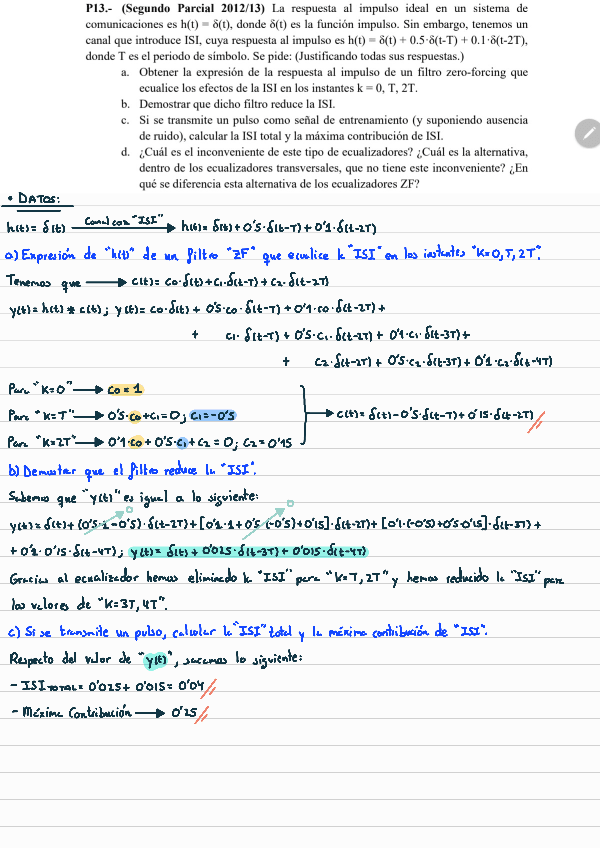 P13.- (Segundo Parcial 2012/13) La respuesta al impulso ideal en un sistema de
comunicaciones es h(t) = δ(t), donde δ(t) es la función impulso. Sin embargo, tenemos un
canal que introduce ISI, cuya respuesta al impulso es h(t) = δ(t) + 0.5·δ(t-T) + 0.1·δ(t-2T),
donde T es el periodo de símbolo. Se pide: (Justificando todas sus respuestas.)
a. Obtener la expresión de la respuesta al impulso de un filtro zero-forcing que
ecualice los efectos de la ISI en los instantes k = 0, T, 2T.
b. Demostrar que dicho filtro reduce la ISI.
c. Si se transmite un pulso como señal de entrenamiento (y suponiendo ausencia
de ruido), calcular la ISI total y la máxima contribución de ISI.
d. ¿Cuál es el inconveniente de este tipo de ecualizadores? ¿Cuál es la alternativa,
dentro de los ecualizadores transversales, que no tiene este inconveniente? ¿En
qué se diferencia esta alternativa de los ecualizadores ZF?
• DATOS:
h(t)= δ(t) Canal con "ISI" → h(t)= δ(t)+0'5·δ(t-T)+0'1·δ(t-2T)
a) Expresión de "h(t)" de un filtro "ZF" que ecualice la "ISI" en los instantes "K=0,T,2T".
Tenemos que → c(t)= C0·δ(t)+C1·δ(t-T)+C2·δ(t-2T)
y(t)=h(t)*c(t); y(t)= C0·δ(t)+ 0'5·C0·δ(t-T)+0'1·C0·δ(t-2T)+
+ C1·δ(t-T)+ 0'5·C1·δ(t-2T)+ 0'1·C1·δ(t-3T)+
+ C2·δ(t-2T)+ 0'5·C2·δ(t-3T)+ 0'1·C2·δ(t-4T)
Para "K=0" → C0=1
Para "K=T" → 0'5·C0+C1=0; C1=-0'5 → c(t)= δ(t)-0'5·δ(t-T)+0'15·δ(t-2T)
Para "K=2T" → 0'1·C0+0'5·C1+C2=0; C2=0'15
b) Demostar que el filtro reduce la "ISI".
Sabemos que "y(t)" es igual a lo siguiente:
y(t)= δ(t)+(0'5·1-0'5)·δ(t-2T)+[0'1·1+0'5·(-0'5)+0'15]·δ(t-2T)+[0'1·(-0'5)+0'5·0'15]·δ(t-3T)+
+0'1·0'15·δ(t-4T); y(t)= δ(t)+0'025·δ(t-3T)+0'015·δ(t-4T)
Gracias al ecualizador hemos eliminado la "ISI" para "K=T,2T" y hemos reducido la "ISI" para
los valores de "K=3T,4T".
c) Si se transmite un pulso, calcular la "ISI" total y la máxima contribución de "ISI".
Respecto del valor de "y(t)", sacamos lo siguiente:
- ISI TOTAL= 0'025+0'015= 0'04
- Máxima Contribución → 0'25